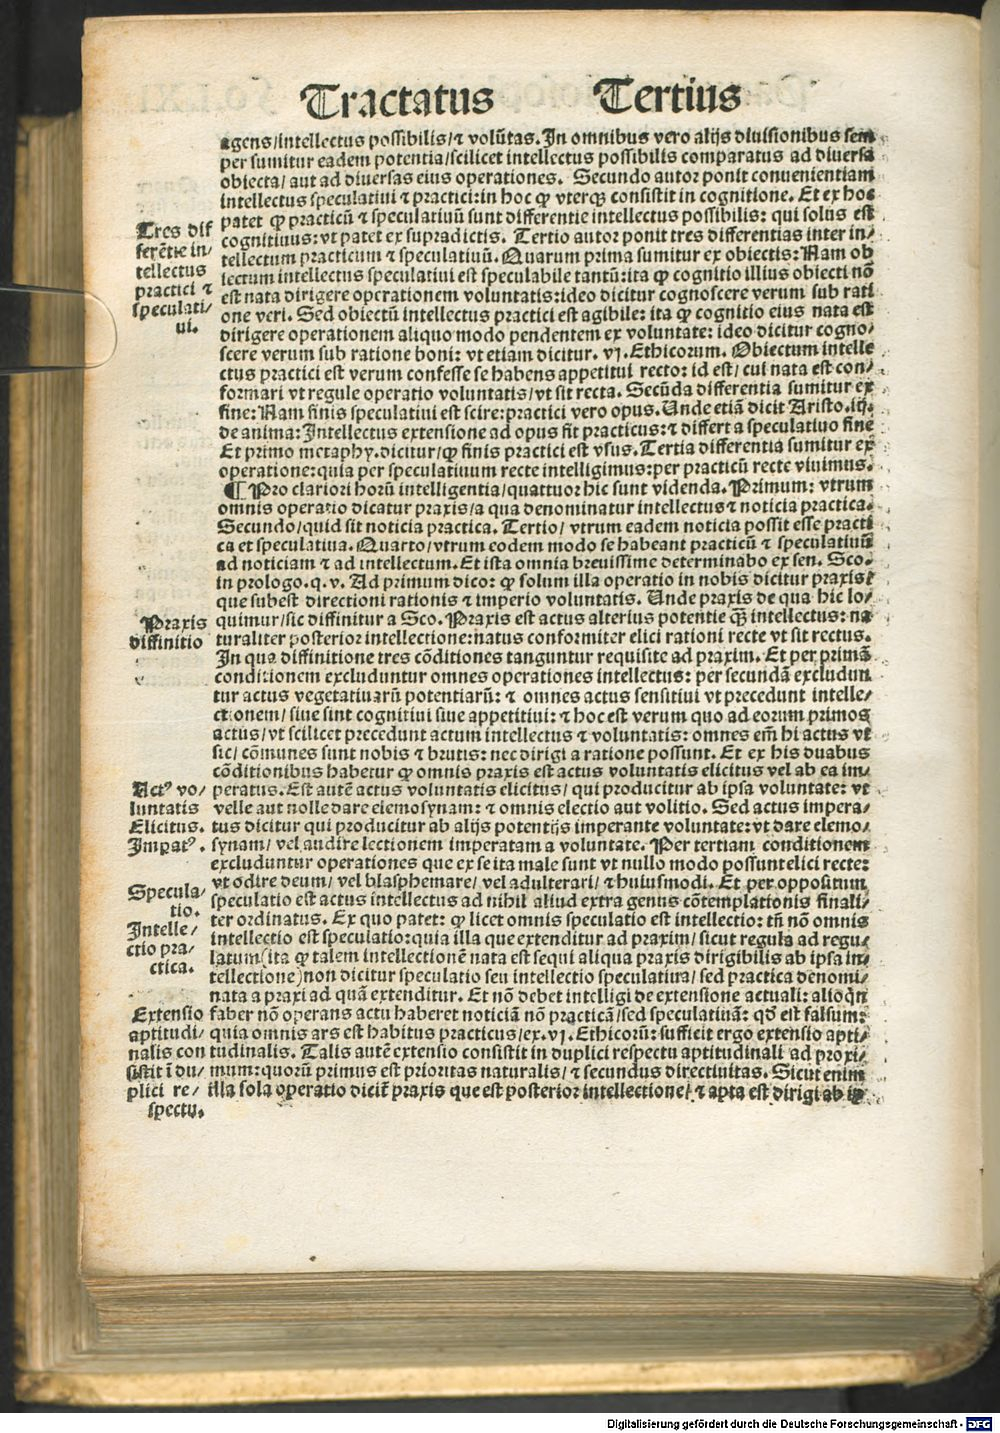 Tractatus Tertius
agens/intellectus possibilis/⁊ volūtas. In omnibus vero alijs diuisionibus sem
per sumitur eadem potentia/scilicet intellectus possibilis comparatus ad diuersa
obiecta/aut ad diuersas eius operationes. Secundo autor ponit conuenientiam
intellectus speculatiui ⁊ practici: in hoc ꝙ vterqꝫ consistit in cognitione. Et ex hoc
patet ꝙ practicū ⁊ speculatiuū sunt differentie intellectus possibilis: qui solus est
cognitiuus: vt patet ex supradictis. Tertio autor ponit tres differentias inter in/
tellectum practicum ⁊ speculatiuū. Quarum prima sumitur ex obiectis: Nam ob
iectum intellectus speculatiui est speculabile tantū: ita ꝙ cognitio illius obiecti nō
est nata dirigere operationem voluntatis: ideo dicitur cognoscere verum sub rati
one veri. Sed obiectū intellectus practici est agibile: ita ꝙ cognitio eius nata est
dirigere operationem aliquo modo pendentem ex voluntate: ideo dicitur cogno/
scere verum sub ratione boni: vt etiam dicitur. vj. Ethicorum. Obiectum intelle
ctus practici est verum confesse se habens appetitui recto: id est/ cui nata est con/
formari vt regule operatio voluntatis/vt sit recta. Secūda differentia sumitur ex
fine: Nam finis speculatiui est scire: practici vero opus. Unde etiā dicit Aristo. iij.
de anima: Intellectus extensione ad opus fit practicus: ⁊ differt a speculatiuo fine
Et primo metaphy. dicitur/ꝙ finis practici est vsus. Tertia differentia sumitur ex
operatione: quia per speculatiuum recte intelligimus: per practicū recte viuimus.
¶ Pro clariori horū intelligentia/quattuor hic sunt videnda. Primum: vtrum
omnis operatio dicatur praxis/a qua denominatur intellectus ⁊ noticia practica.
Secundo/quid sit noticia practica. Tertio/ vtrum eadem noticia possit esse practi
ca et speculatiua. Quarto/vtrum eodem modo se habeant practicū ⁊ speculatiuū
ad noticiam ⁊ ad intellectum. Et ista omnia breuissime determinabo ex sen. Sco.
in prologo. q. v. Ad primum dico: ꝙ solum illa operatio in nobis dicitur praxis:
que subest directioni rationis ⁊ imperio voluntatis. Unde praxis de qua hic lo/
quimur/sic diffinitur a Sco. Praxis est actus alterius potentie qꝫ̄ intellectus: na
turaliter posterior intellectione: natus conformiter elici rationi recte vt sit rectus.
In qua diffinitione tres cōditiones tanguntur requisite ad praxim. Et per primā
conditionem excluduntur omnes operationes intellectus: per secundā excludun
tur actus vegetatiuarū potentiarū: ⁊ omnes actus sensitiui vt precedunt intelle/
ctionem/ siue sint cognitiui siue appetitiui: ⁊ hoc est verum quo ad eorum primos
actus/vt scilicet precedunt actum intellectus ⁊ voluntatis: omnes em̄ hi actus vt
sic/ cōmunes sunt nobis ⁊ brutis: nec dirigi a ratione possunt. Et ex his duabus
cōditionibus habetur ꝙ omnis praxis est actus voluntatis elicitus vel ab ea im/
peratus. Est autē actus voluntatis elicitus/ qui producitur ab ipsa voluntate: vt
velle aut nolle dare elemosynam: ⁊ omnis electio aut volitio. Sed actus impera/
tus dicitur qui producitur ab alijs potentijs imperante voluntate: vt dare elemo/
synam/ vel audire lectionem imperatam a voluntate. Per tertiam conditionem
excluduntur operationes que ex se ita male sunt vt nullo modo possunt elici recte:
vt odire deum/ vel blasphemare/ vel adulterari/ ⁊ huiusmodi. Et per oppositum
speculatio est actus intellectus ad nihil aliud extra genus cōtemplationis finali/
ter ordinatus. Ex quo patet: ꝙ licet omnis speculatio est intellectio: tn̄ nō omnis
intellectio est speculatio: quia illa que extenditur ad praxim/ sicut regula ad regu/
latum (ita ꝙ talem intellectionē nata est sequi aliqua praxis dirigibilis ab ipsa in/
tellectione) non dicitur speculatio seu intellectio speculatiua/ sed practica denomi/
nata a praxi ad quā extenditur. Et nō debet intelligi de extensione actuali: alioqn̄
faber nō operans actu haberet noticiā nō practicā/ sed speculatiuā: qd̄ est falsum:
quia omnis ars est habitus practicus/ex. vj. Ethicorū: sufficit ergo extensio apti/
tudinalis. Talis autē extensio consistit in duplici respectu aptitudinali ad proxi/
mum: quorū primus est prioritas naturalis/ ⁊ secundus directiuitas. Sicut enim
illa sola operatio dicit̄ praxis que est posterior intellectione/ ⁊ apta est dirigi ab ip
Tres dif
ferētie in/
tellectus
practici ⁊
speculati/
ui.
Praxis
diffinitio
Actꝰ vo/
luntatis
Elicitus.
Impatꝰ.
Specula/
tio.
Intelle/
ctio pra/
ctica.
Extensio
aptitudi/
nalis con
sistit ī du/
plici re/
spectu.
Digitalisierung gefördert durch die Deutsche Forschungsgemeinschaft - DFG